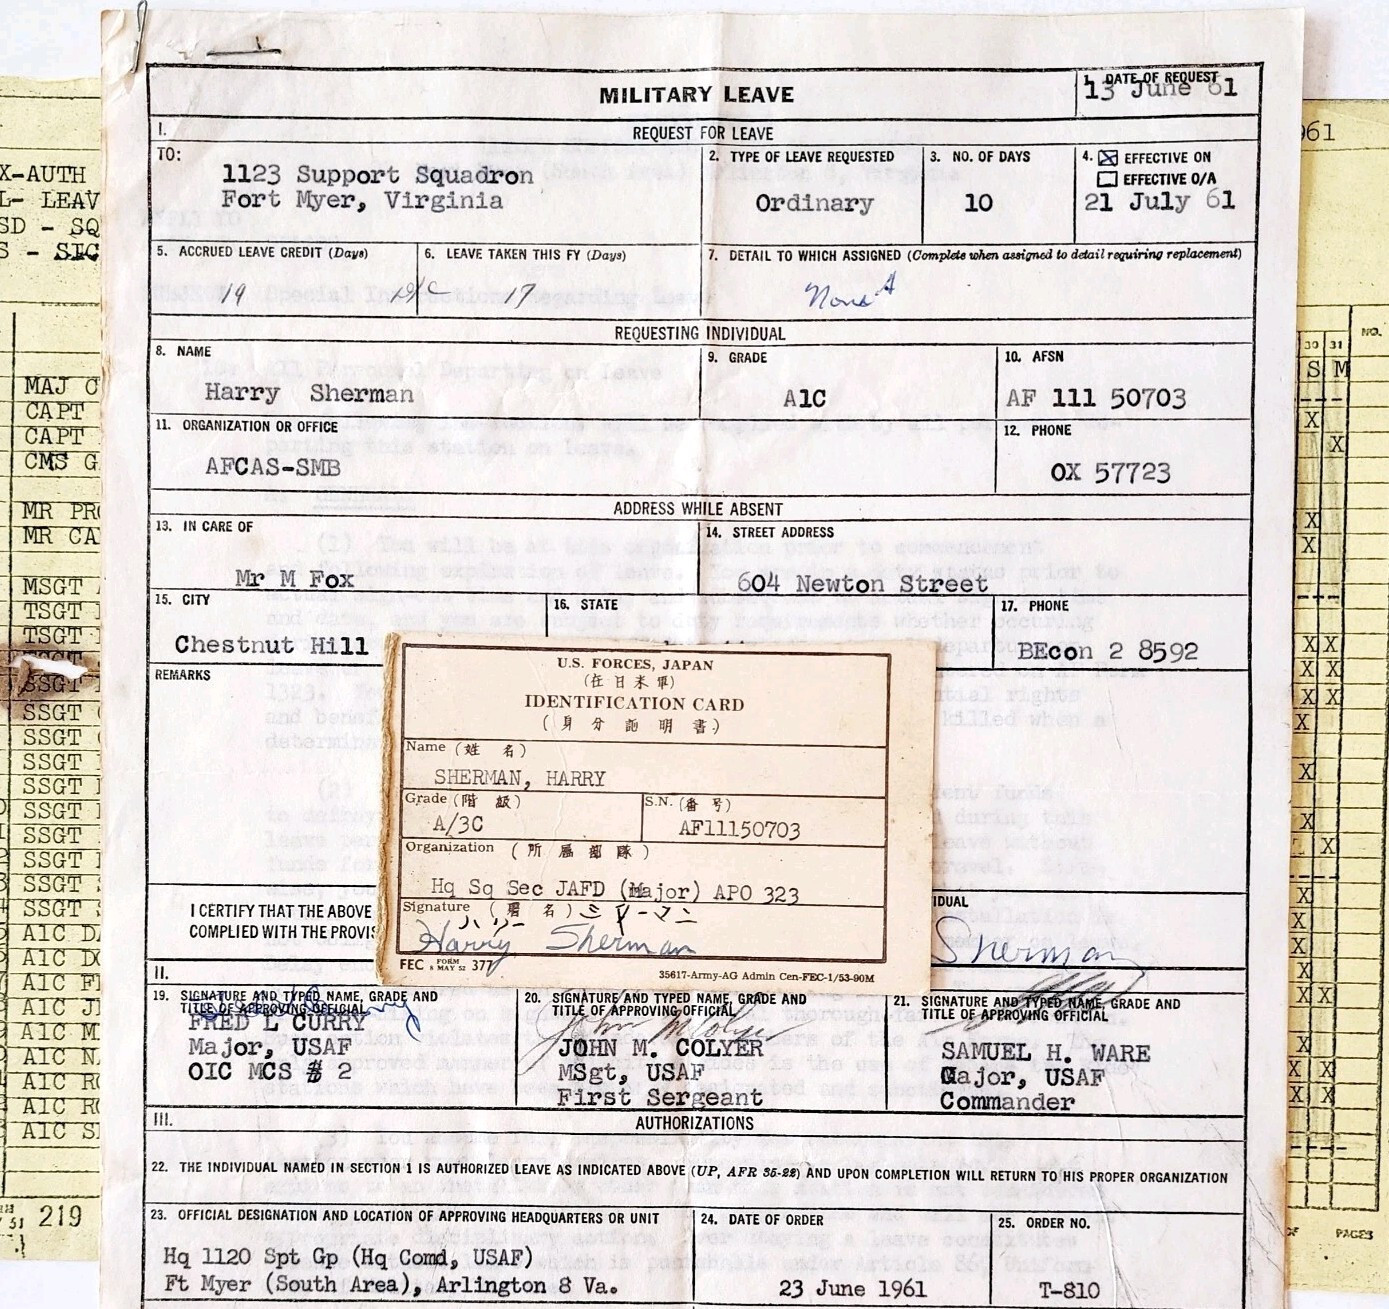 MILITARY LEAVE
1. DATE OF REQUEST
13 June 61
I.
REQUEST FOR LEAVE
TO:
1123 Support Squadron
Fort Myer, Virginia
2. TYPE OF LEAVE REQUESTED
Ordinary
3. NO. OF DAYS
10
4. EFFECTIVE ON
EFFECTIVE O/A
21 July 61
5. ACCRUED LEAVE CREDIT (Days)
19
6. LEAVE TAKEN THIS FY (Days)
17
7. DETAIL TO WHICH ASSIGNED (Complete when assigned to detail requiring replacement)
None
REQUESTING INDIVIDUAL
8. NAME
Harry Sherman
9. GRADE
A1C
10. AFSN
AF 111 50703
11. ORGANIZATION OR OFFICE
AFCAS-SMB
12. PHONE
OX 57723
ADDRESS WHILE ABSENT
13. IN CARE OF
Mr M Fox
14. STREET ADDRESS
604 Newton Street
15. CITY
Chestnut Hill
16. STATE
17. PHONE
BEcon 2 8592
REMARKS
I CERTIFY THAT THE ABOVE
COMPLIED WITH THE PROVIS
IDUAL
Sherman
U.S. FORCES, JAPAN
(在日米軍)
IDENTIFICATION CARD
(身分証明書)
Name (姓 名)
SHERMAN, HARRY
Grade (階 級)
A/3C
S.N. (番 号)
AF11150703
Organization (所属部隊)
Hq Sq Sec JAFD (Major) APO 323
Signature (署 名)
ハリー シャーマン
Harry Sherman
FEC FORM 8 MAY 52 377
35617-Army-AG Admin Cen-FEC-1/53-90M
II.
19. SIGNATURE AND TYPED NAME, GRADE AND
TITLE OF APPROVING OFFICIAL
FRED L CURRY
Major, USAF
OIC MCS # 2
20. SIGNATURE AND TYPED NAME, GRADE AND
TITLE OF APPROVING OFFICIAL
JOHN M. COLYER
MSgt, USAF
First Sergeant
21. SIGNATURE AND TYPED NAME, GRADE AND
TITLE OF APPROVING OFFICIAL
SAMUEL H. WARE
Major, USAF
Commander
III.
AUTHORIZATIONS
22. THE INDIVIDUAL NAMED IN SECTION 1 IS AUTHORIZED LEAVE AS INDICATED ABOVE (UP, AFR 35-22) AND UPON COMPLETION WILL RETURN TO HIS PROPER ORGANIZATION
23. OFFICIAL DESIGNATION AND LOCATION OF APPROVING HEADQUARTERS OR UNIT
Hq 1120 Spt Gp (Hq Comd, USAF)
Ft Myer (South Area), Arlington 8 Va.
24. DATE OF ORDER
23 June 1961
25. ORDER NO.
T-810
X-AUTH
L- LEAV
SD - SQ
S - SIC
MAJ C
CAPT
CAPT
CMS G
MR PR
MR CA
MSGT
TSGT
TSGT
SSGT
SSGT
SSGT
SSGT
SSGT
SSGT
SSGT
SSGT
SSGT
SSGT
A1C D
A1C D
A1C F
A1C J
A1C M
A1C N
A1C R
A1C R
A1C S
219
961
NO.
30 31
S M
PAGES